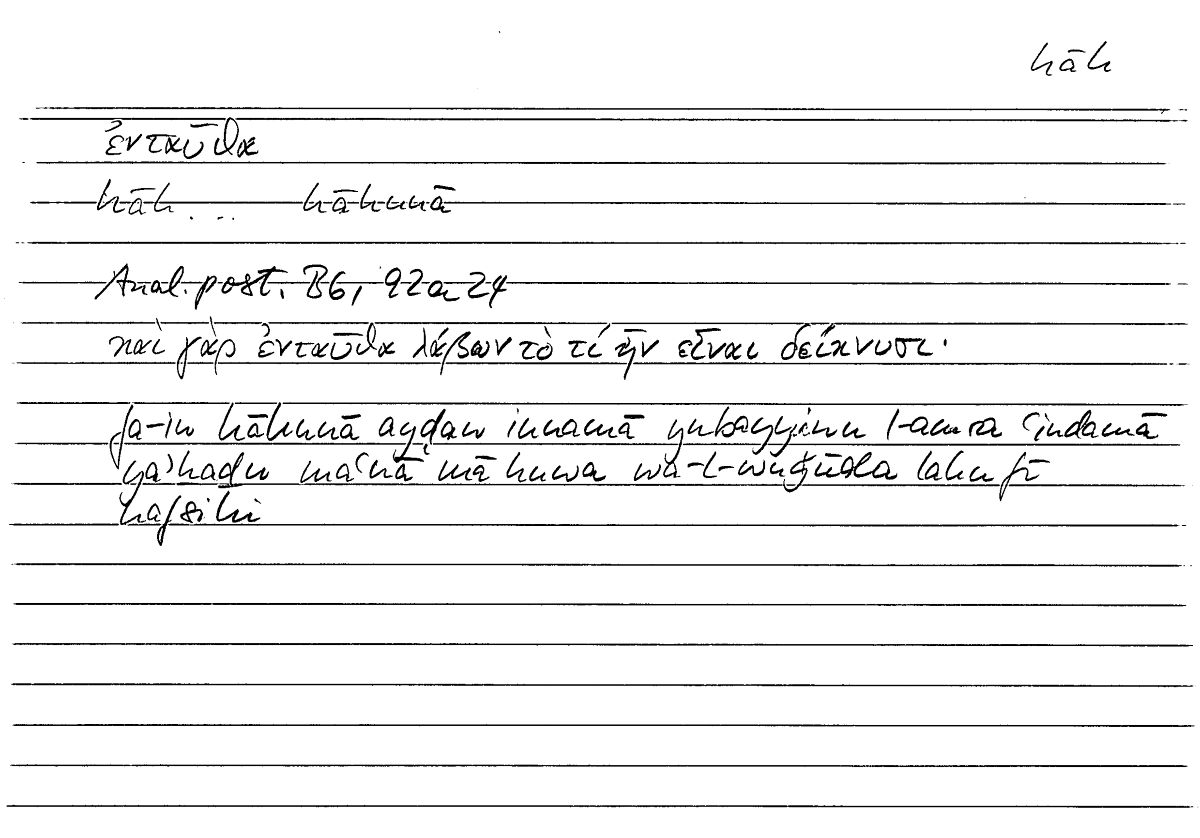 hāh
ἐνταῦθα
hāh... hāhunā
Anal. post. B6, 92a24
καὶ γὰρ ἐνταῦθα λάβων τὸ τί ἦν εἶναι δείκνυσι·
fa-in hāhunā ayḍan innamā yubayyinu l-amra ʿindamā
yaʾḫaḏu maʿnā mā huwa wa-l-wuǧūda lahu fī
nafsihi